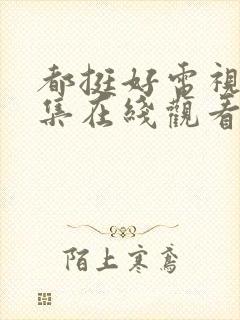 都挺好电視
集在綫觀看
陌上寒鸢